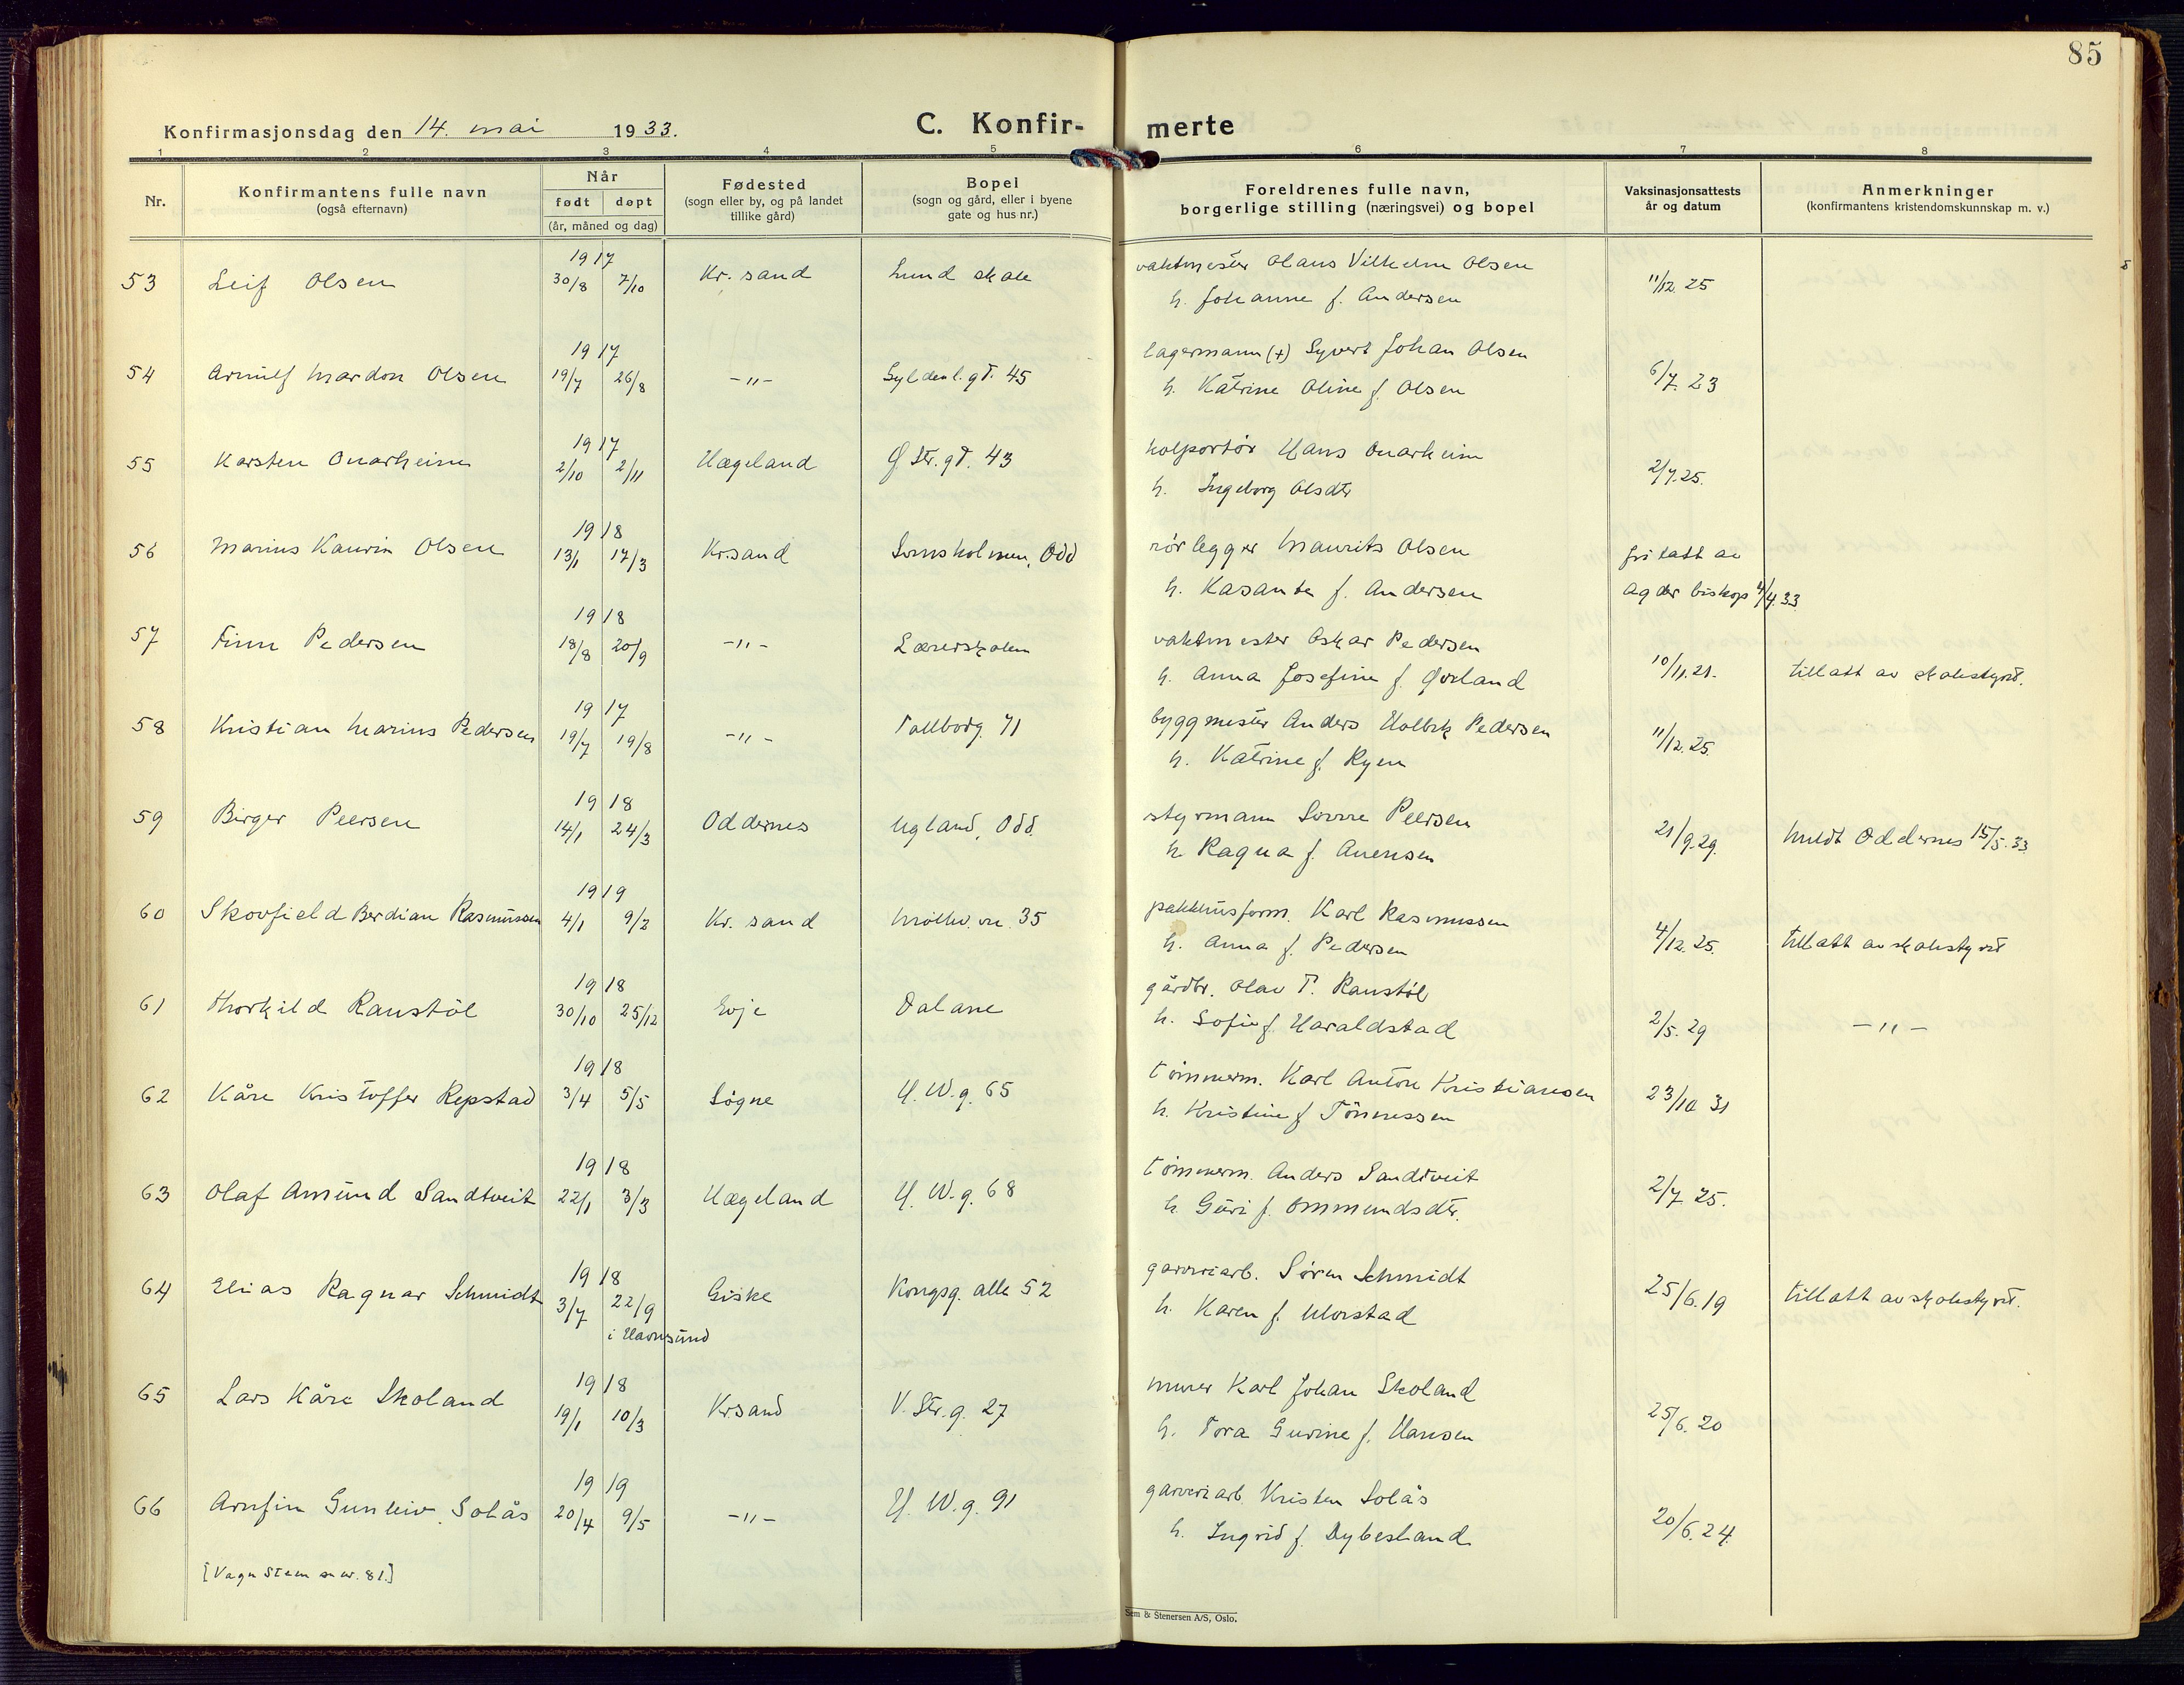 85
Konfirmasjonsdag den 14. mai 1933. C. Konfir- merte
1 2 3 4 5 6 7 8
Nr. Konfirmantens fulle navn (også efternavn) Når født døpt (år, måned og dag) Fødested (sogn eller by, og på landet tillike gård) Bopel (sogn og gård, eller i byene gate og hus nr.) Foreldrenes fulle navn, borgerlige stilling (næringsvei) og bopel Vaksinasjonsattests år og datum Anmerkninger (konfirmantens kristendomskunnskap m. v.)
1917 vaktmester Olaus Vilhelm Olsen
53 Leif Olsen 30/8 7/10 Kr. sand Lund skole 11/12. 25
h. Johanne f. Andersen
1917 lagermann (+) Syvert Johan Olsen
54 Arnulf Mardon Olsen 19/7 26/8 -"- Gyldenl. gt. 45 6/7. 23
h. Katrine Oline f. Olsen
1917 kolportør Hans Onarheim
55 Karsten Onarheim 2/10 2/11 Hægeland Ø Str. gt. 43 2/7. 25.
h. Ingeborg Olsdtr
1918 rørlegger Maurits Olsen
56 Marius Kaurin Olsen 13/1 17/3 Kr.sand Lumsholmen, Odd fritatt av
h. Kasanta f. Andersen Agder biskop 4/4.33
1918 vaktmester Oskar Pedersen
57 Finn Pedersen 18/8 20/9 -"- Lærerskolen 10/11. 21. tillatt av skolestyret.
h. Anna Josefine f. Øvland
1917 byggmester Anders Holbek Pedersen
58 Kristian Marius Pedersen 19/7 19/8 -"- Tollbodg. 71 11/12. 25.
h. Katrine f. Ryen
1918 styrmann Sverre Peersen
59 Birger Peersen 14/1 24/3 Oddernes Ugland, Odd. 21/9. 29. Meldt Oddernes 15/5. 33.
h. Ragna f. Auensen
1919 pakkhusform. Karl Rasmussen
60 Skovfield Berdian Rasmussen 4/1 9/2 Kr. sand Mølle v. 35 4/12. 25. tillatt av skolestyret
h. Anna f. Pedersen
1918 gårdbr. Olav T. Raustøl
61 Thorkild Raustøl 30/10 25/12 Evje Dalane 2/5. 29 -"-
h. Sofie f. Haraldstad
1918 tømmerm. Karl Anton Kristiansen
62 Kåre Kristoffer Repstad 3/4 5/5 Søgne H. W. g. 65 23/10 31
h. Kristine f. Tønnessen
1918 tømmerm. Anders Sandtveit
63 Olaf Amund Sandtveit 22/1 3/3 Hægeland H. W. g. 68 2/7 25.
h. Guri f. Ommundsdtr.
1918 garveriarb. Søren Schmidt
64 Elias Ragnar Schmidt 3/7 22/9 Giske Kongsg. alle 52 25/6. 19 tillatt av skolestyret.
i Havnsund h. Karen f. Ulvestad
1918 murer Karl Johan Skoland
65 Lars Kåre Skoland 19/1 10/3 Kr.sand V. Str. g. 27 25/6. 20
h. Tora Gurine f. Hansen
1919 garveriarb. Kristen Solås
66 Arnfin Gunleiv Solås 20/4 9/5 -"- H. W. g. 91 20/6. 24.
h. Ingrid f. Dybesland
[Vagn Steen se nr. 81.]
Sem & Stenersen A/S, Oslo.